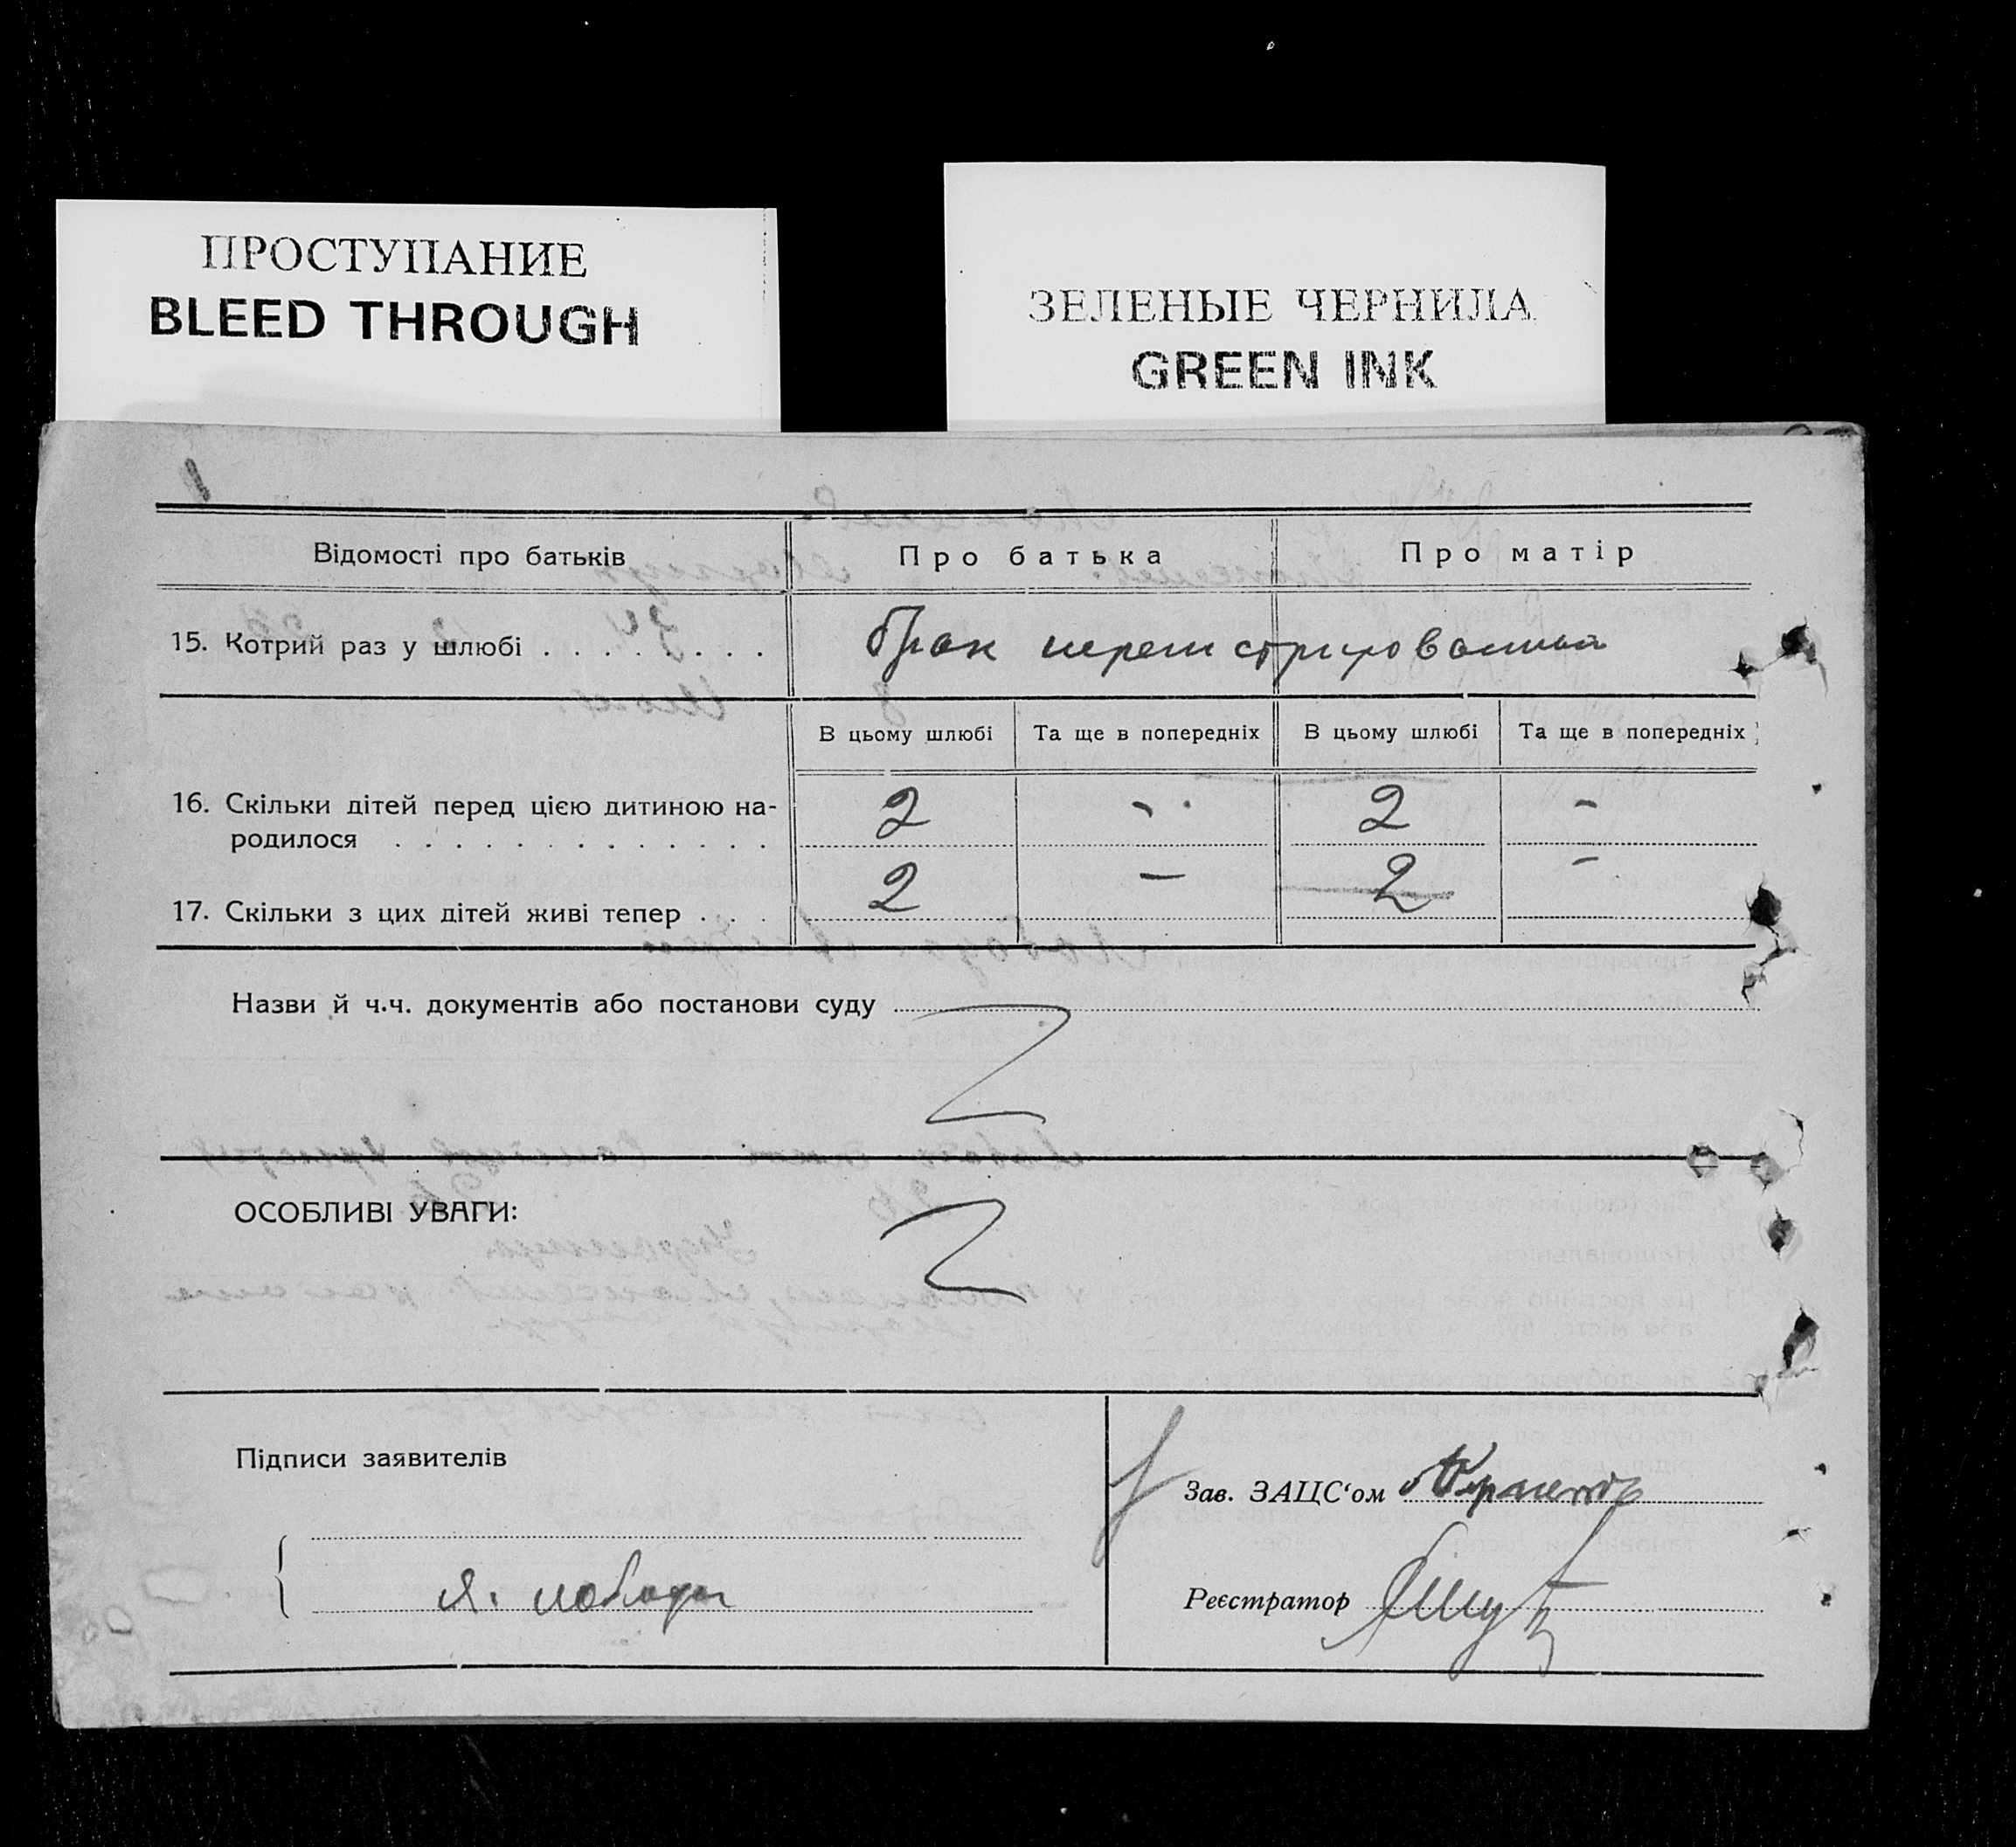 ПРОСТУПАНИЕ
BLEED THROUGH
ЗЕЛЕНЫЕ ЧЕРНИЛА
GREEN INK
Відомості про батьків Про батька Про матір
15. Котрий раз у шлюбі . . . . . . . . брак
В цьому шлюбі Та ще в попередніх В цьому шлюбі Та ще в попередніх
16. Скільки дітей перед цією дитиною на-
родилося . . . . . . . . . . . . . 2 - 2 -
17. Скільки з цих дітей живі тепер . . . 2 - 2 -
Назви й ч.ч. документів або постанови суду
ОСОБЛИВІ УВАГИ:
Підписи заявителів
Зав. ЗАЦС‘ом
Я. лобода
Реєстратор